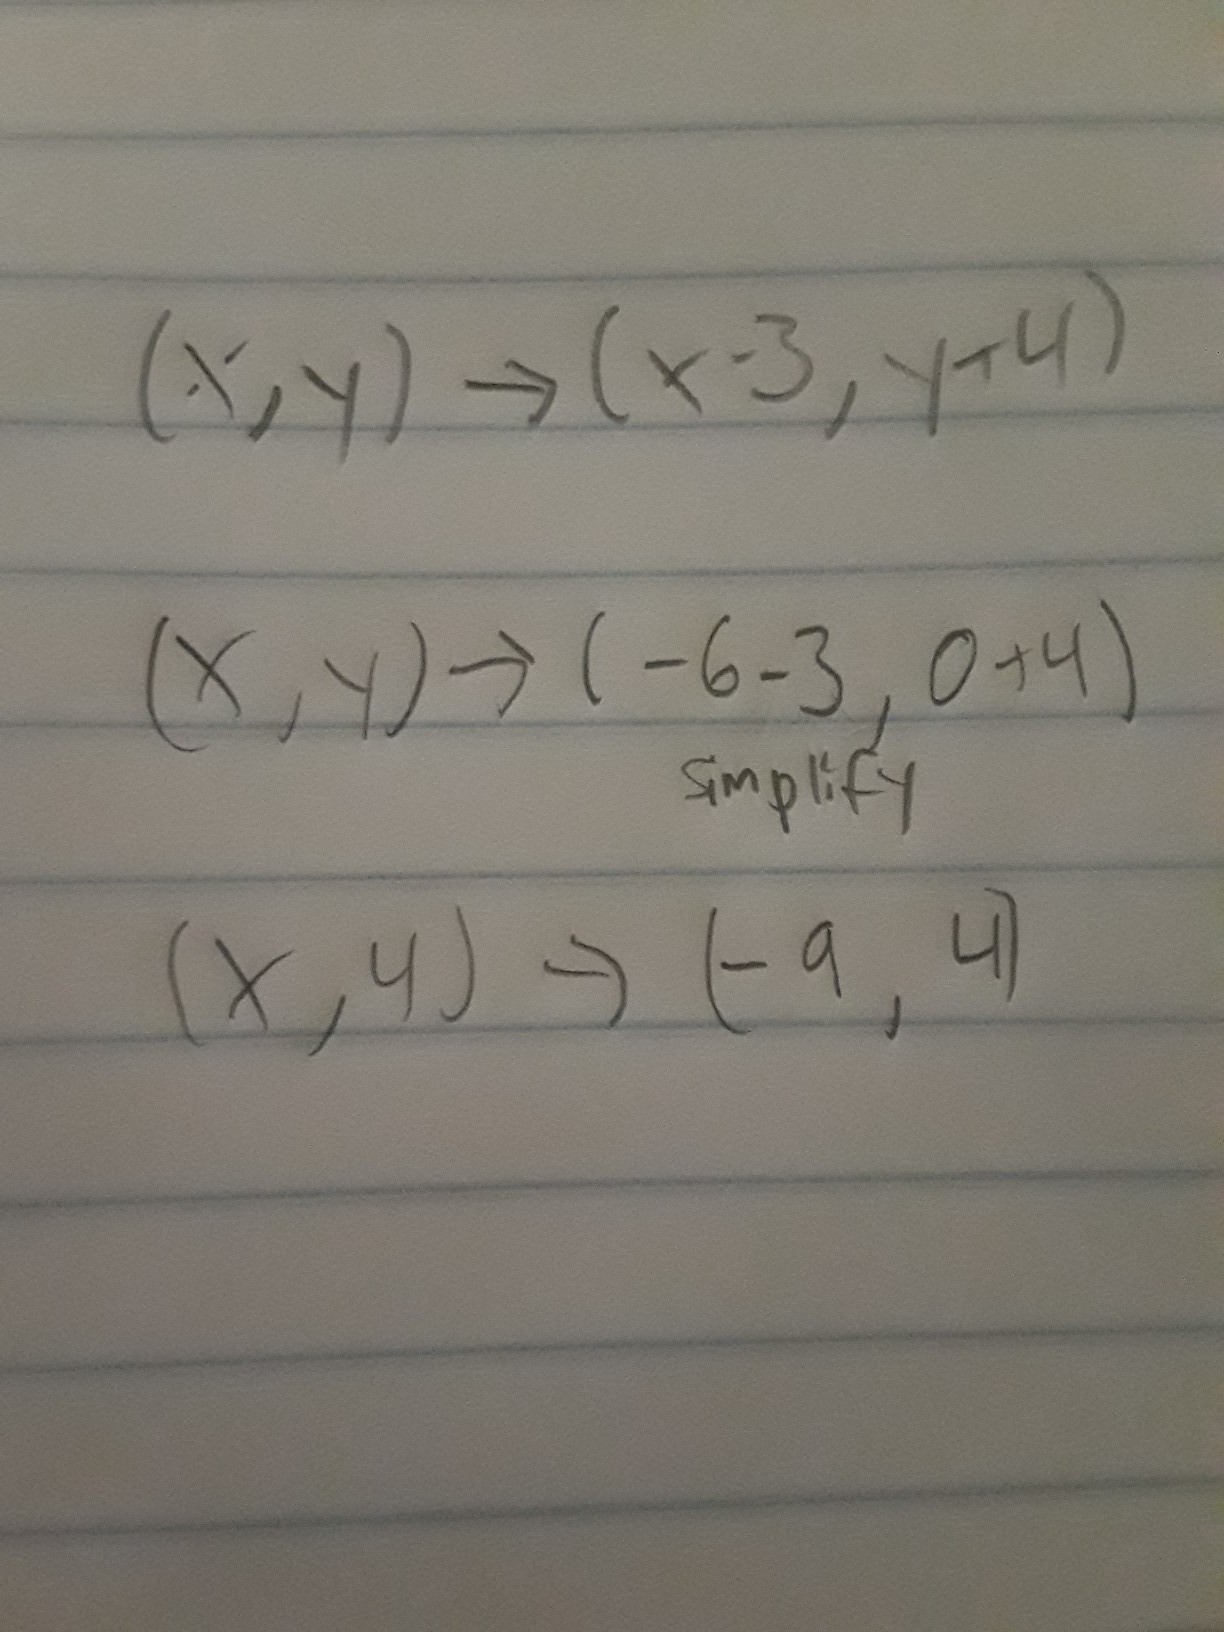 (x,y) → (x-3, y+4)
(x,y) → (-6-3, 0+4)
simplify
(x,4) → (-9, 4)